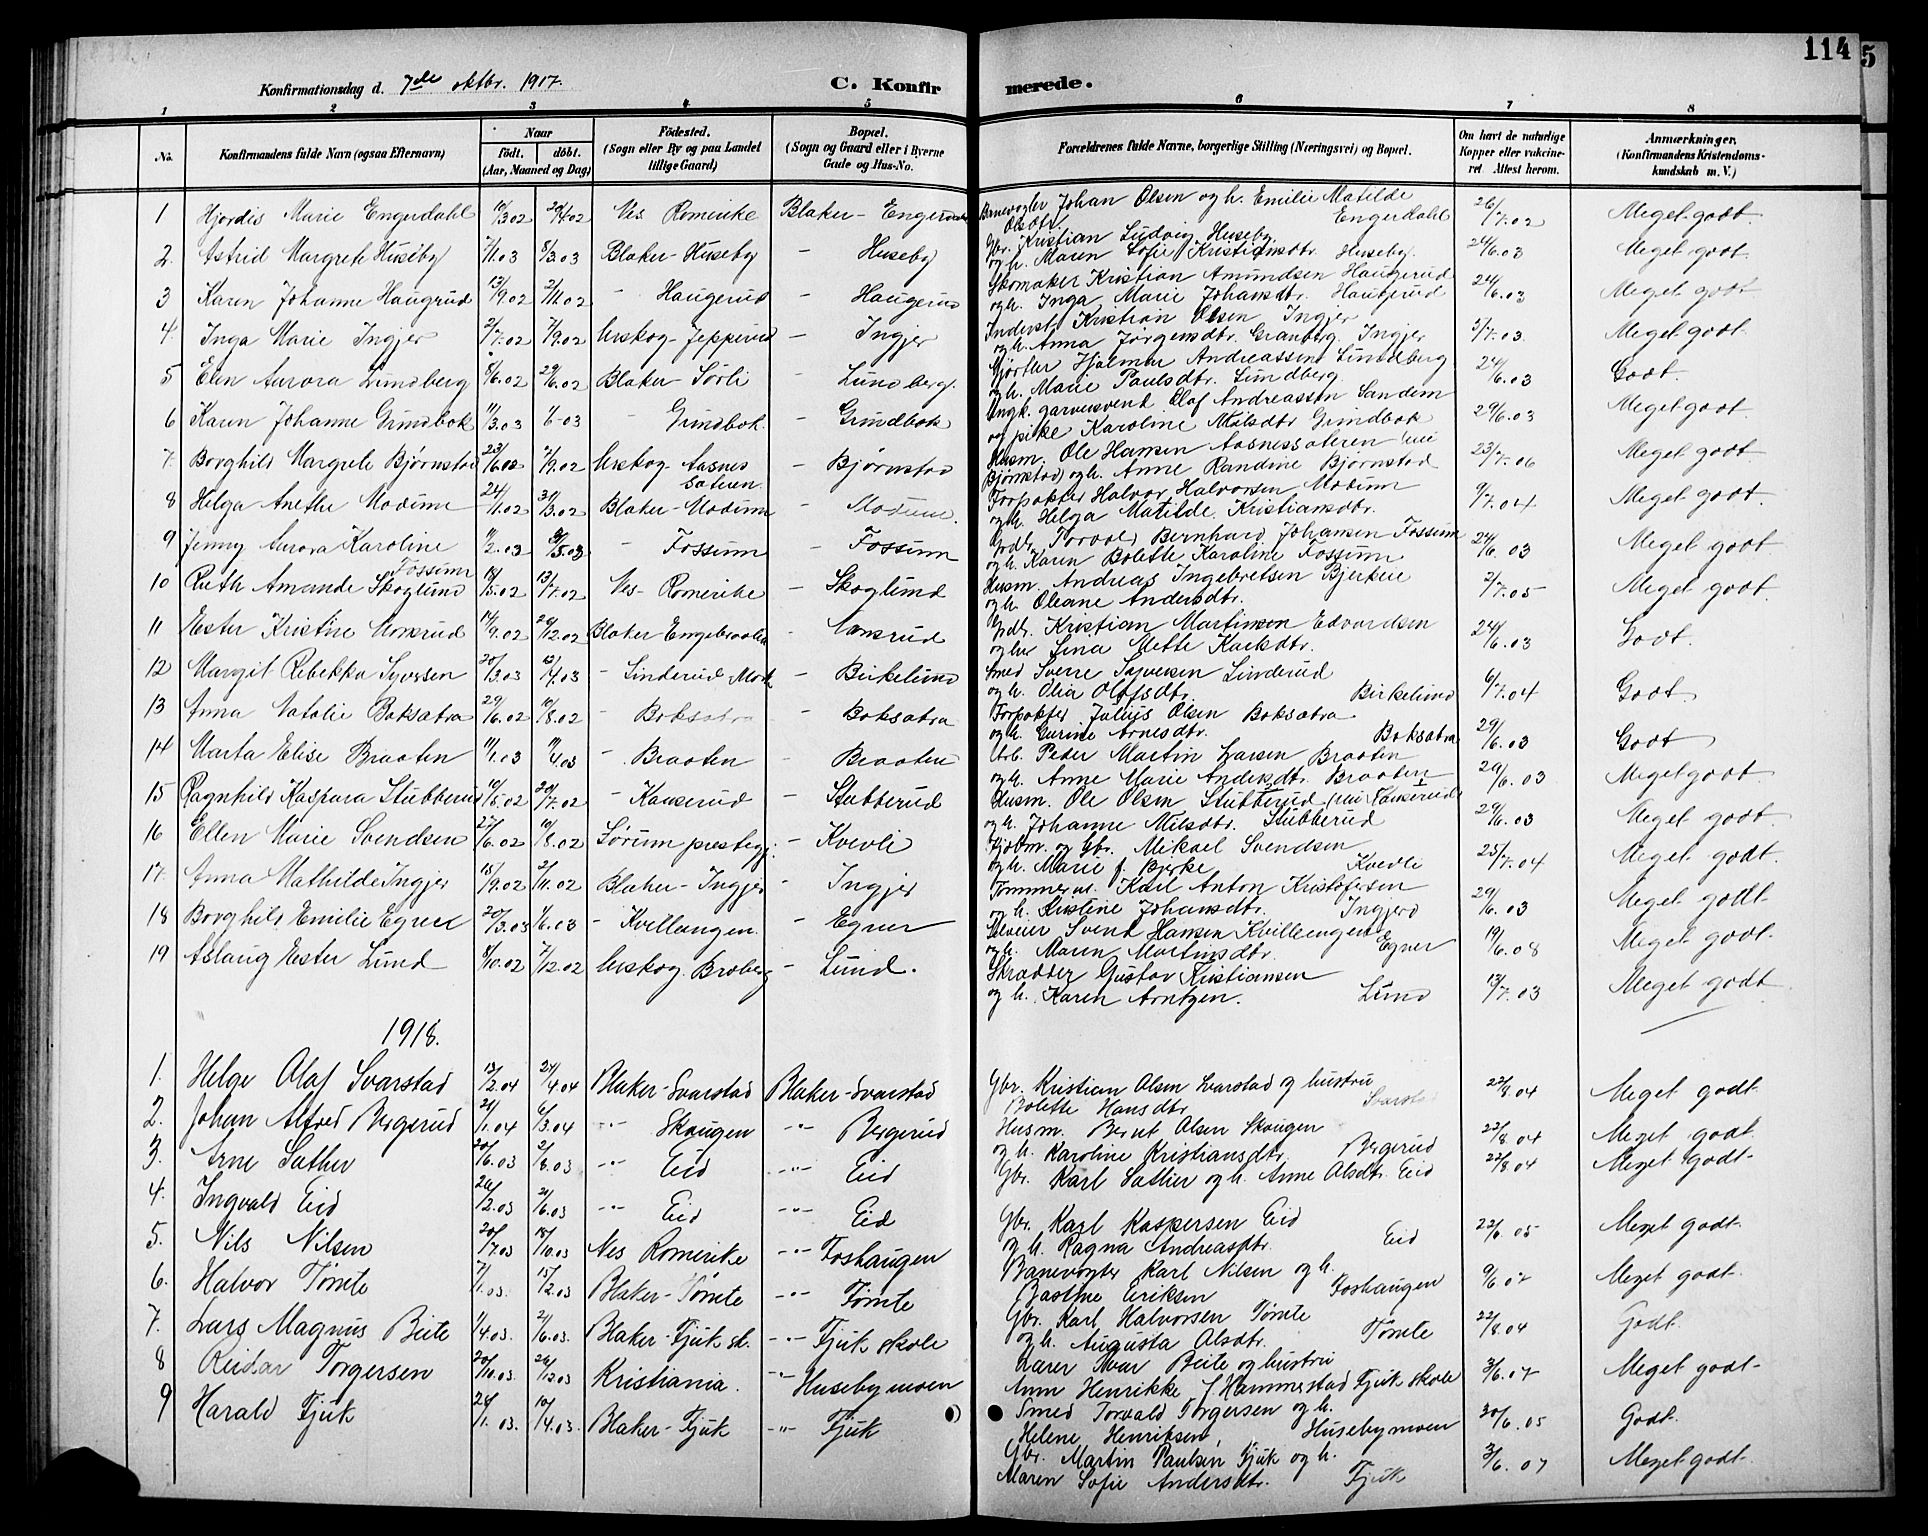 114
5
Konfirmationsdag d. 7de oktbr. 1917.
C. Konfirmerede.
1 2 3 4 5 6 7 8
No.
Konfirmandens fulde Navn (ogsaa Efternavn)
Naar
födt. döbt.
(Aar, Maaned og Dag)
Födested.
(Sogn eller By og paa Landet tillige Gaard)
Bopæl.
(Sogn og Gaard eller i Byerne Gade og Hus-No.
Forældrenes fulde Navne, borgerlige Stilling (Næringsvei) og Bopæl.
Om havt de naturlige Kopper eller vakcineret Attest herom.
Anmærkninger.
(Konfirmandens Kristendomskundskab m. V.)
1 Hjordis Marie Engerdahl 10/3.02 20/4.02 Nes Romerike Blaker - Engerdahl Banevogter Johan Olsen og h. Emilie Matilde Olsdtr. Engerdahl 26/7.02 Meget godt
2. Astrid Margrete Huseby 7/1.03 8/3.03 Blaker - Huseby - Huseby Gbr. Kristian Ludvig Huseby og h. Maren Sofie Kristiansdtr. Huseby. 24/6.03 Meget godt.
3 Karen Johanne Haugrud 13/9.02 2/11.02 - Haugerud - Haugerud Skomaker Kristian Amundsen Haugerud og h. Inga Marie Johansdtr. Haugerud 24/6.03 Meget godt
4. Inga Marie Ingjer 2/7.02 7/9.02 Urskog - Jepperud - Ingjer Inderst Kristian Olsen Ingjer og h. Anna Jörgensdtr. Granberg. Ingjer 5/7.03. Meget godt.
5 Elen Aurora Lundberg 8/6.02 29/6.02 Blaker - Sörli - Lundberg. Hjalmar Andreassen Lundberg og h. Marie Paulsdtr. Lundberg 24/6.03 Godt.
6 Karen Johanne Grindbok 11/3.03 1/6.03 - Grindbok - Grindbok Ungk. garversvend Olaf Andreassen Sandem og pike Karoline Nilsdtr Grindbok 29/6.03 Meget godt.
7. Borghild Margrete Bjørnstad 23/6.02 7/9.02 Urskog - Aasnes sæteren - Bjørnstad Husm. Ole Hansen Aasnessæteren Bjørnstad og h. Anne Randine Bjørnstad 23/7.06 Meget godt
8 Helga Anette Modum 24/1.02 31/3.02 Blaker - Modum - Modum. Forpakter Halvor Halvorsen Modum og h. Helga Matilde Kristiansdtr. 9/7.04 Meget godt
9 Jenny Aurora Karoline Fossum 11/2.03 3/5.03 - Fossum - Fossum Torvald Bernhard Johansen Fossum og h. Karen Bolette Karoline Fossum 24/6.03 Meget godt
10 Ruth Amanda Skoglund 18/5.02 13/7.02 Nes - Romerike - Skoglund Husm. Andreas Ingebretsen Bjerkeie og h. Oleane Andersdtr. 2/7.05 Meget godt.
11 Ester Kristine 14/9.02 20/12.02 Blaker - Engebraaten Kristian Martinsen Edvardsen og h. Lina Mette 24/6.03 Godt.
12 Margit Rebekka Syversen 20/3.03 12/4.03 - Linderud Birkelund Smed Sverre Syversen Linderud og h. Olia Olafsdtr. Birkelund 6/7.04 Godt
13 Anna Natalie Boksætra 29/6.02 10/8.02 - Boksætra - Boksætra Forpakter Julius Olsen Boksætra og h. Gurine Arnesdtr. Boksætra 29/6.03 Godt
14 Marta Elise Braaten 11/1.03 11/4.03 - Braaten - Braaten Arb. Peder Martin Larsen Braaten og h. Anne Marie Andersdtr Braaten 29/6.03 Meget godt
15 Ragnhild Kaspara Stubberud 10/5.02 20/7.02 - Kauserud - Stubberud Husm. Ole Olsen Stubberud og h. Johanne Nilsdtr. Stubberud 29/6.03 Meget godt.
16 Ellen Marie Svendsen 27/6.02 10/8.02 Sørum prestegj. - Kvevli og Gbr. Mikael Svendsen og h. Marie f. Bjerke Kvevli 25/7.04 Meget godt.
17. Anna Mathilde Ingjer 15/9.02 2/11.02 Blaker - Ingjer - Ingjer Tømmerm. Karl Anton Kristofersen og h. Kristine Johansdtr. Ingjerd 29/6.03 Meget godt
18 Borghild Emilie Egner 20/3.03 1/6.03 - Kvillengen - Egner Selveier Svend Hansen Kvillengen og h. Maren Martinsdtr. Egner 19/6.08 Meget godt.
19 Aslaug Ester Lund 8/10.02 7/12.02 Urskog. Broberg - Lund. Skrædder Gustav Kristiansen og h. Karen Arntzen. Lund 13/7.03 Meget godt
1918.
1. Helge Olaf Svarstad 13/2.04 24/4.04 Blaker - Svarstad Blaker - Svarstad Gbr. Kristian Olsen Svarstad og hustru Bolette Hansdtr Svarstad 22/8.04 Meget godt.
2. Johan Alfred Bergerud 21/1.04 6/3.04 -"- Skougen -"- Bergerud Husm. Bernt Olsen Skougen og h. Karoline Kristiansdtr. Bergerud 22/8.04 Meget godt.
3. Arne Sæther 20/6.03 2/8.03 -"- Eid -"- Eid Gbr. Karl Sæther og h. Anne Olsdtr. Eid 22/8.04 Meget godt.
4. Ingvald Eid 26/2.03 21/6.03 -"- Eid -"- Eid Gbr. Karl Kaspersen Eid og h. Ragna Andreasdtr. Eid 22/6.05 Meget godt.
5. Nils Nilsen 20/7.03 18/10.03 Nes Romerike -"- Foshaugen Banevogter Karl Nilsen og h. Eriksen Foshaugen 9/6.07 Meget godt.
6. Halvor Tömte 7/1.03. 15/2.03 Blaker - Tömte -"- Tömte Gbr. Karl Halvorsen Tömte og h. Augusta Olsdtr. Tömte 22/8.04 Godt.
7. Lars Magnus Beite 1/4.03. 21/6.03. Blaker - Fjuk sk. -"- Fjuk skole Lærer Ivar Beite og hustru Anne Henrikke f. Hammerstad Fjuk skole 3/6.07 Meget godt.
8 Reidar Torgersen 20/10.03. 26/12.03 Kristiania. -"- Husebymoen Smed Torvald Torgersen og h. Helene Henriksen, Husebymoen 30/6.05 Godt.
9 Harald Fjuk 26/1.03. 10/4.03. Blaker - Fjuk -"- Fjuk Gbr. Martin Paulsen Fjuk og h. Maren Sofie Andersdtr. Fjuk 3/6.07 Meget godt.